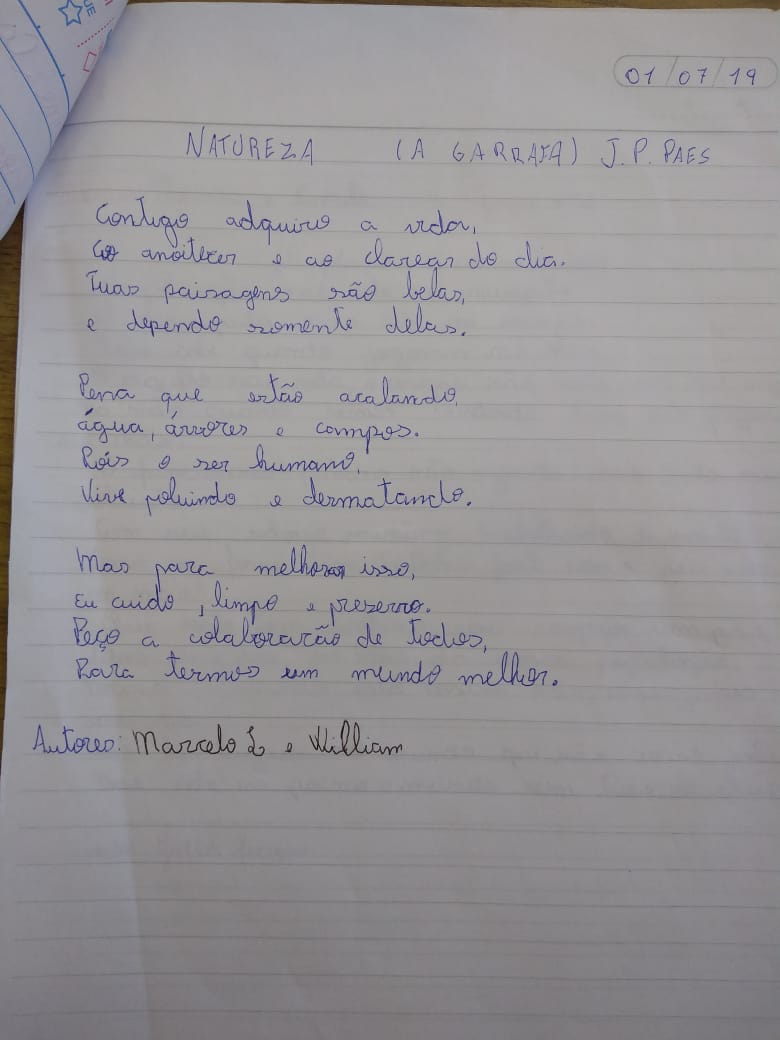 01/07/19
NATUREZA (A GARRAFA) J.P. PAES
Contigo adquiro a vida,
Ao anoitecer e ao clarear do dia.
Tuas paisagens são belas,
e dependo somente delas.
Pena que estão acabando,
água, árvores e campos.
Pois o ser humano,
Vive poluindo e desmatando.
Mas para melhorar isso,
Eu cuido, limpo e preservo.
Peço a colaboração de todos,
Para termos um mundo melhor.
Autores: Marcelo L e William